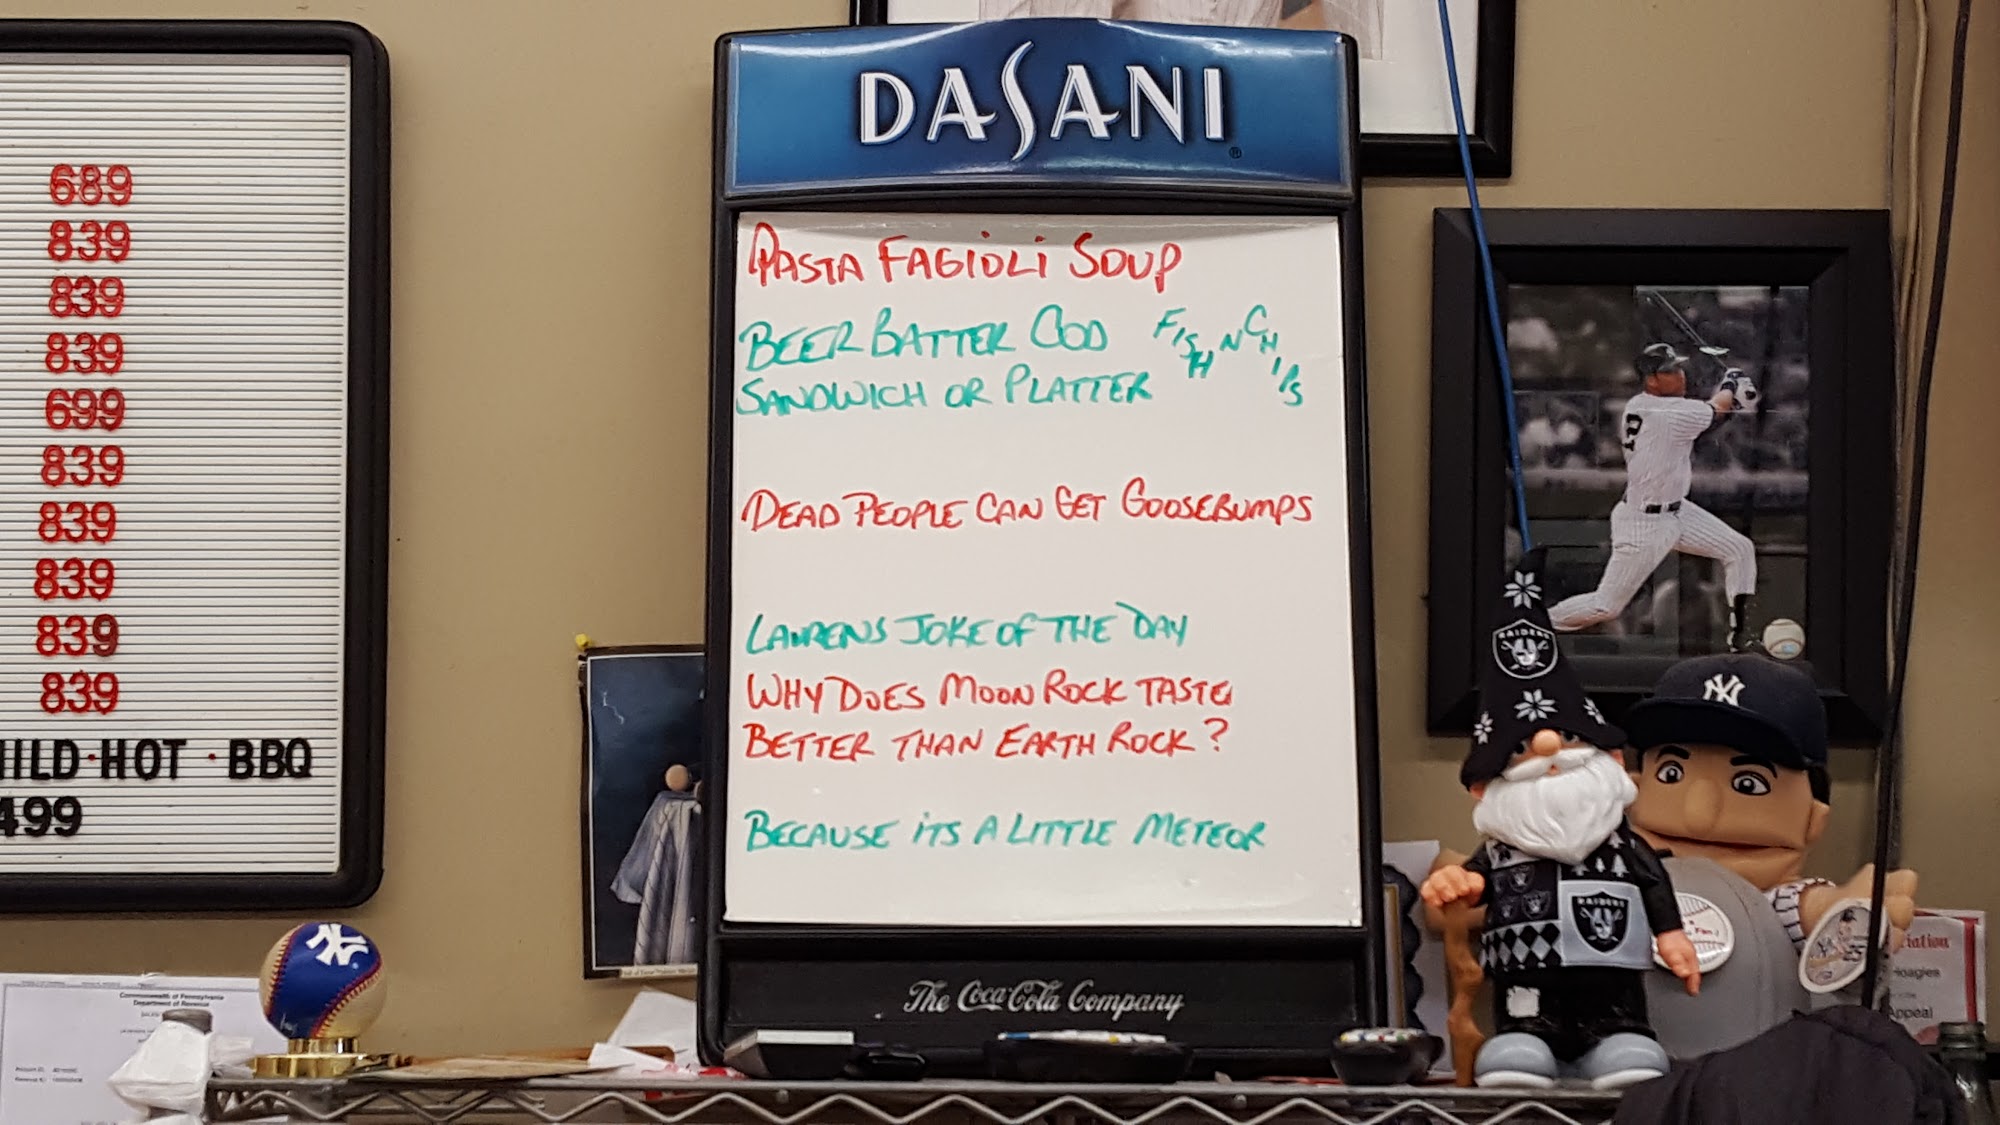 689
839
839
839
699
839
839
839
839
839
HOT · BBQ
499
DASANI
PASTA FAGIOLI SOUP
BEER BATTER COD FISH N CHIPS
SANDWICH OR PLATTER
DEAD PEOPLE CAN GET GOOSEBUMPS
LAURENS JOKE OF THE DAY
WHY DOES MOON ROCK TASTE
BETTER THAN EARTH ROCK?
BECAUSE ITS A LITTLE METEOR
The Coca-Cola Company
2
RAIDERS
NY
RAIDERS
NY
Commonwealth of Pennsylvania
Department of Revenue
Hoagies
Appeal